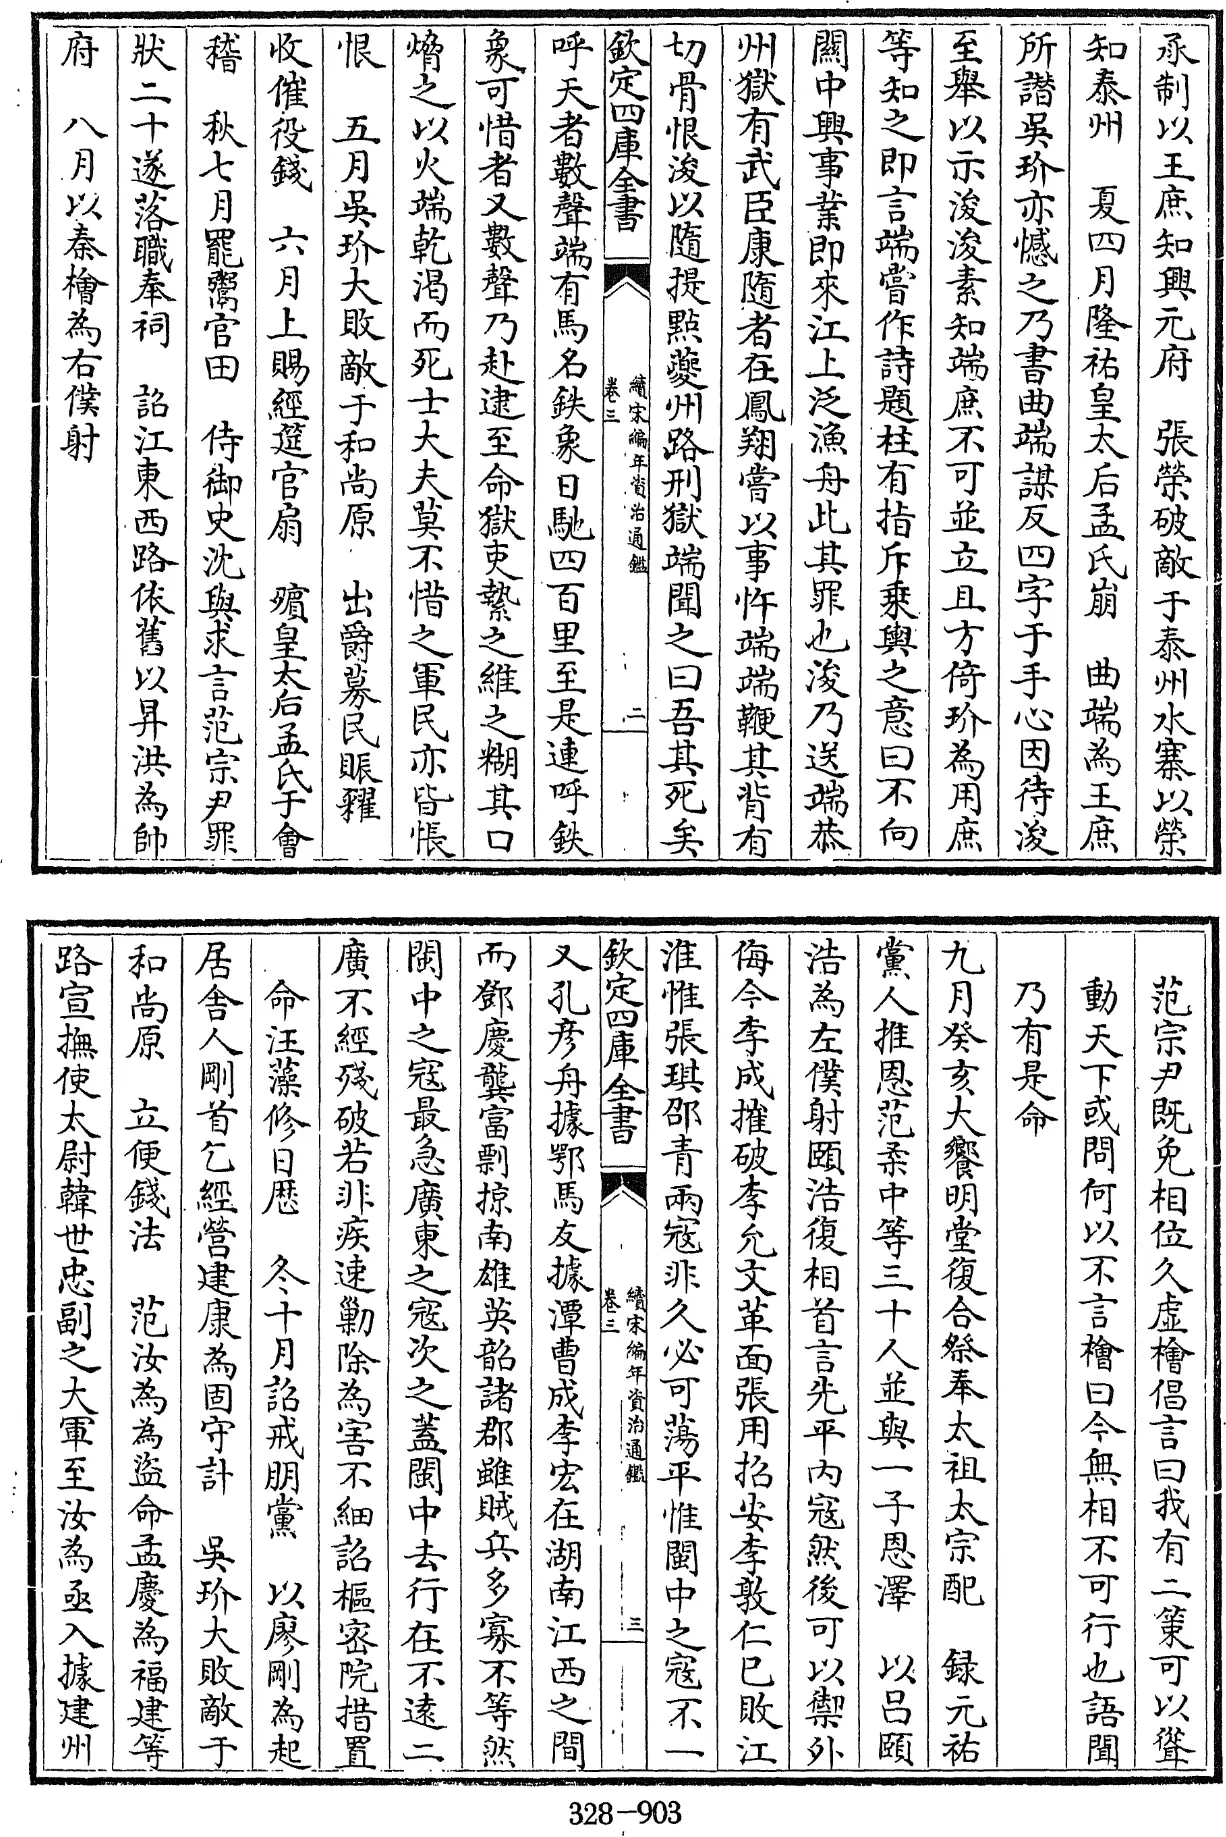 承制以王庶知興元府　張榮破敵于泰州水寨以榮
知泰州　夏四月隆祐皇太后孟氏崩　曲端為王庶
所譖吳玠亦憾之乃書曲端謀反四字于手心因待浚
至舉以示浚浚素知端庶不可並立且方倚玠為用庶
等知之即言端嘗作詩題柱有指斥乗輿之意曰不向
關中興事業即來江上泛漁舟此其罪也浚乃送端恭
州獄有武臣康隨者在鳳翔嘗以事忤端端鞭其背有
切骨恨浚以隨提點夔州路刑獄端聞之曰吾其死矣
欽定四庫全書　續宋編年資治通鑑　卷三　二
呼天者數聲端有馬名鉄象日馳四百里至是連呼鉄
象可惜者又數聲乃赴逮至命獄吏縶之維之糊其口
熁之以火端乾渴而死士大夫莫不惜之軍民亦皆悵
恨　五月吳玠大敗敵于和尚原　出爵募民賑糴
收催役錢　六月上賜經筵官扇　殯皇太后孟氏于會
稽　秋七月罷鬻官田　侍御史沈與求言范宗尹罪
狀二十遂落職奉祠　詔江東西路依舊以昇洪為帥
府　八月以秦檜為右僕射
范宗尹既免相位久虛檜倡言曰我有二策可以聳
動天下或問何以不言檜曰今無相不可行也語聞
乃有是命
九月癸亥大饗明堂復合祭奉太祖太宗配　録元祐
黨人推恩范柔中等三十人並與一子恩澤　以呂頤
浩為左僕射頤浩復相首言先平内寇然後可以禦外
侮今李成摧破李允文革面張用招安李敦仁已敗江
淮惟張琪邵青兩寇非久必可蕩平惟閩中之寇不一
欽定四庫全書　續宋編年資治通鑑　卷三　三
又孔彦舟據鄂馬友據潭曹成李宏在湖南江西之間
而鄧慶龔富剽掠南雄英韶諸郡雖賊兵多寡不等然
閩中之寇最急廣東之寇次之蓋閩中去行在不遠二
廣不經殘破若非疾速勦除為害不細詔樞密院措置
命汪藻修日歴　冬十月詔戒朋黨　以廖剛為起
居舍人剛首乞經營建康為固守計　吳玠大敗敵于
和尚原　立便錢法　范汝為為盗命孟慶為福建等
路宣撫使太尉韓世忠副之大軍至汝為亟入據建州
328-903